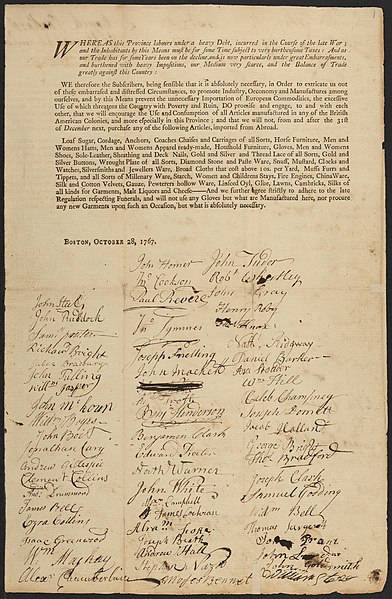 WHEREAS this Province labours under a heavy Debt, incurred in the Course of the late War;
and the Inhabitants by this Means must be for some Time subject to very burthensome Taxes:—And as
our Trade has for some Years been on the decline, and is now particularly under great Embarrassments,
and burthened with heavy Impositions, our Medium very scarce, and the Balance of Trade
greatly against this Country:
WE therefore the Subscribers, being sensible that it is absolutely necessary, in Order to extricate us out
of these embarrassed and distressed Circumstances, to promote Industry, Oeconomy and Manufactures among
ourselves, and by this Means prevent the unnecessary Importation of European Commodities, the excessive
Use of which threatens the Country with Poverty and Ruin, DO promise and engage, to and with each
other, that we will encourage the Use and Consumption of all Articles manufactured in any of the British
American Colonies, and more especially in this Province; and that we will not, from and after the 31st
of December next, purchase any of the following Articles, imported from Abroad.
Loaf Sugar, Cordage, Anchors, Coaches Chaises and Carriages of all Sorts, Horse Furniture, Men and
Womens Hatts, Men and Womens Apparel ready-made, Houshold Furniture, Gloves, Men and Womens
Shoes, Sole-Leather, Sheathing and Deck Nails, Gold and Silver and Thread Lace of all Sorts, Gold and
Silver Buttons, Wrought Plate of all Sorts, Diamond Stone and Paste Ware, Snuff, Mustard, Clocks and
Watches, Silversmiths and Jewellers Ware, Broad Cloths that cost above 10s. per Yard, Muffs Furrs and
Tippets, and all Sorts of Millenary Ware, Starch, Women and Childrens Stays, Fire Engines, China Ware,
Silk and Cotton Velvets, Gauze, Pewterers hollow Ware, Linseed Oyl, Glue, Lawns, Cambricks, Silks of
all kinds for Garments, Malt Liquors and Cheese.—And we further agree strictly to adhere to the late
Regulation respecting Funerals, and will not use any Gloves but what are Manufactured here, nor procure
any new Garments upon such an Occasion, but what is absolutely necessary.
BOSTON, OCTOBER 28, 1767.
John Homer
Jno. Cockson
Paul Revere
Jno Symmes
Joseph Snelling
John Mackett
Benj Henderson
Benjamen Clark
Edward Foster
Seth Warner
John White
Campbell
James Cochran
Abram
Joseph Beath
Andrew Hall
Stephen
Moses Bennet
John Tudor
Robt Whatley
John Gray
Henry Roby
Knox
Nath Ridgway
Daniel Barber
Asa Stodder
Wm Hill
Caleb Champney
Joseph Dorrett
Jacob Holland
George Bright
Thos Bradford
Joseph Clark
Samuel Gooding
Will Bell
Thomas Sargent
Grant
John Goldsmith
John Steel
John Ruddock
Richard Bright
John Bradbury
John Greening
John McLourn
John Bois
Jonathan Cary
Andrew Gillespie
Clement Collins
Drummond
James Ball
Ezra Collins
Isaac Greenwood
Wm Mackay
Alexr Chamberlain